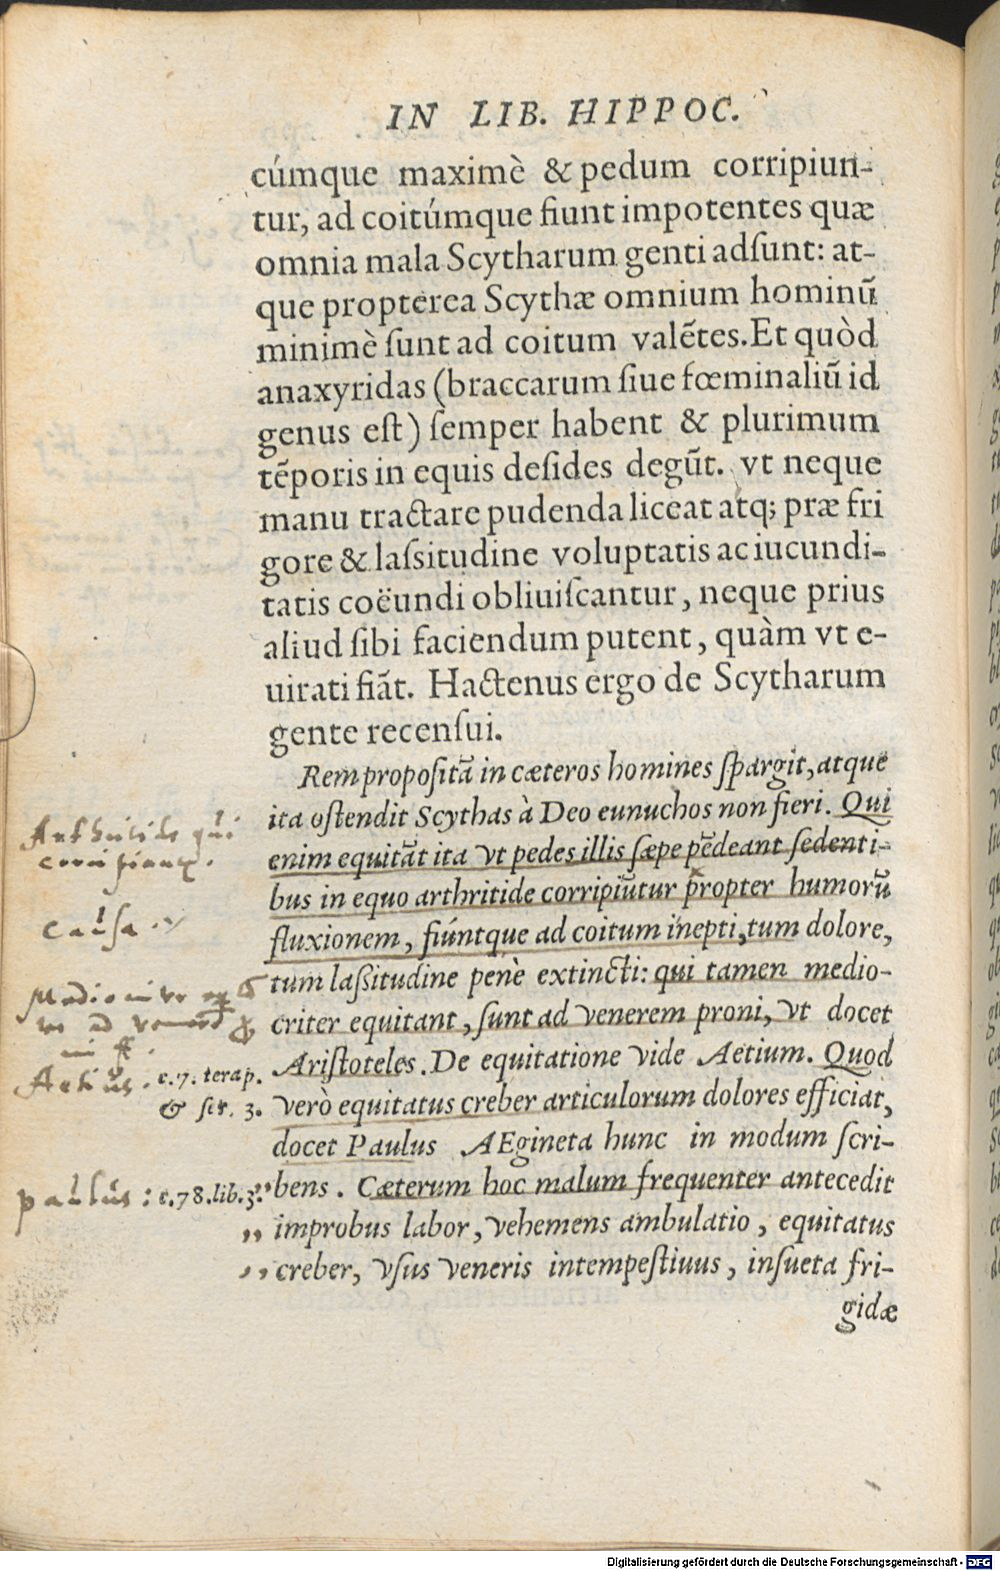 IN LIB. HIPPOC.
cúmque maximè & pedum corripiun-
tur, ad coitúmque fiunt impotentes quæ
omnia mala Scytharum genti adſunt: at-
que propterea Scythæ omnium hominũ
minimè ſunt ad coitum valẽtes. Et quòd
anaxyridas (braccarum ſiue fœminaliũ id
genus eſt) ſemper habent & plurimum
tẽporis in equis deſides degũt. vt neque
manu tractare pudenda liceat atq; præ fri
gore & laſsitudine voluptatis ac iucundi-
tatis coëundi obliuiſcantur, neque prius
aliud ſibi faciendum putent, quàm vt e-
uirati fiãt. Hactenus ergo de Scytharum
gente recenſui.
Rem propoſitã in cæteros homines ſpargit, atque
ita oſtendit Scythas à Deo eunuchos non fieri. Qui
enim equitãt ita vt pedes illis ſæpe pẽdeant ſedenti-
bus in equo arthritide corripiũtur propter humorũ
fluxionem, fiúntque ad coitum inepti, tum dolore,
tum laſsitudine penè extincti: qui tamen medio-
criter equitant, ſunt ad venerem proni, vt docet
Ariſtoteles. De equitatione vide Aetium. Quod
verò equitatus creber articulorum dolores efficiat,
docet Paulus AEgineta hunc in modum ſcri-
bens. Cæterum hoc malum frequenter antecedit
improbus labor, vehemens ambulatio, equitatus
creber, vſus veneris intempeſtiuus, inſueta fri-
gidæ
Arthritide qui
corripiant.
Causa.
Aetius. c.7. terap.
& ſer. 3.
Paulus: c.78.lib.3.„
„
„
Digitalisierung gefördert durch die Deutsche Forschungsgemeinschaft - DFG